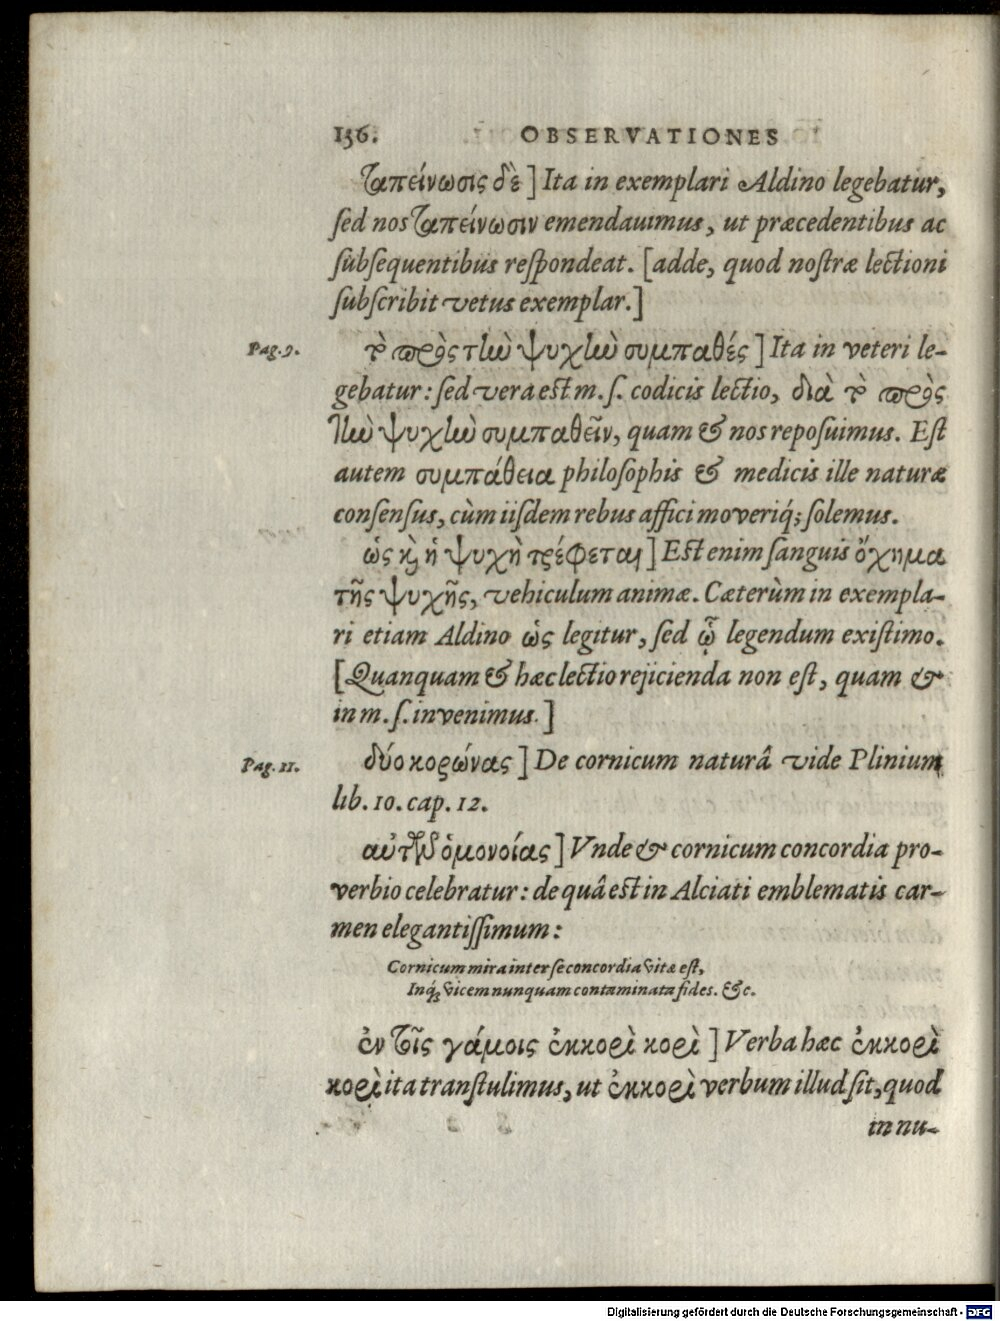 136. OBSERVATIONES
ταπείνωσις δὲ] Ita in exemplari Aldino legebatur,
sed nos ταπείνωσιν emendavimus, ut præcedentibus ac
subsequentibus respondeat. [adde, quod nostræ lectioni
subscribit vetus exemplar.]
Pag. 9. τὸ πρὸς τὴν ψυχὴν συμπαθές] Ita in veteri le-
gebatur: sed vera est m. s. codicis lectio, διὰ τὸ πρὸς
τὴν ψυχὴν συμπαθεῖν, quam & nos reposuimus. Est
autem συμπάθεια philosophis & medicis ille naturæ
consensus, cùm iisdem rebus affici moveriq́; solemus.
ὡς καὶ ἡ ψυχὴ τρέφεται] Est enim sanguis ὄχημα
τῆς ψυχῆς, vehiculum animæ. Cæterùm in exempla-
ri etiam Aldino ὡς legitur, sed ᾧ legendum existimo.
[Quanquam & hæc lectio rejicienda non est, quam &
in m. s. invenimus.]
Pag. 11. δύο κορώνας] De cornicum naturâ vide Plinium
lib. 10. cap. 12.
αὐτῶν ὁμονοίας] Vnde & cornicum concordia pro-
verbio celebratur: de quâ est in Alciati emblematis car-
men elegantissimum:
Cornicum mira inter se concordia vitæ est,
Inq́; vicem nunquam contaminata fides. &c.
ἐν τοῖς γάμοις ἐκκορὶ κορὶ] Verba hæc ἐκκορὶ
κορὶ ita transtulimus, ut ἐκκορὶ verbum illud sit, quod
in nu-
Digitalisierung gefördert durch die Deutsche Forschungsgemeinschaft - DFG